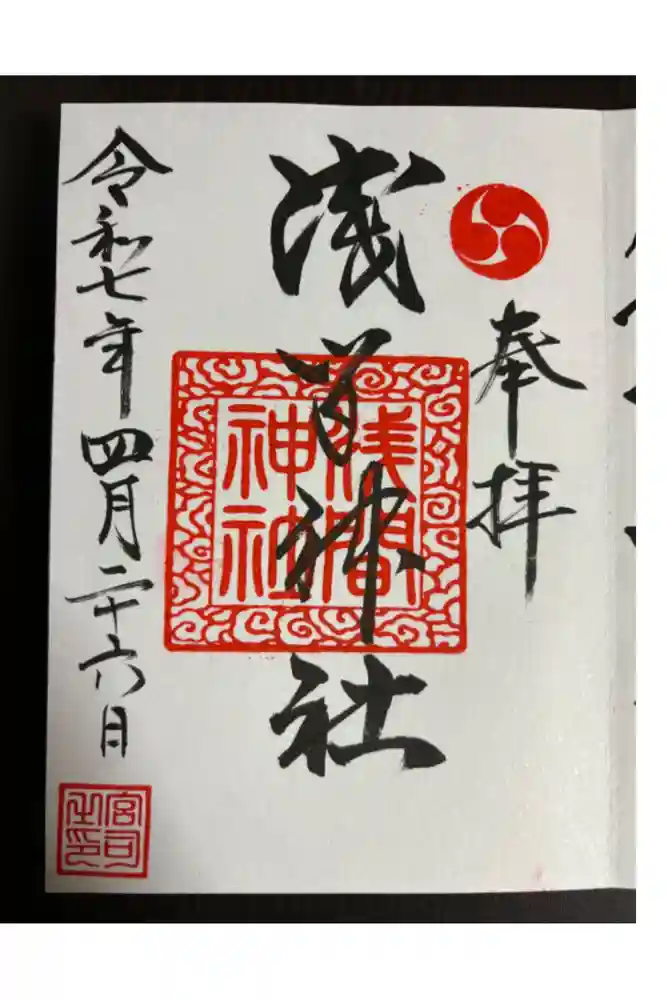 奉拝
浅間神社
浅間神社
令和七年四月二十六日
宮司之印